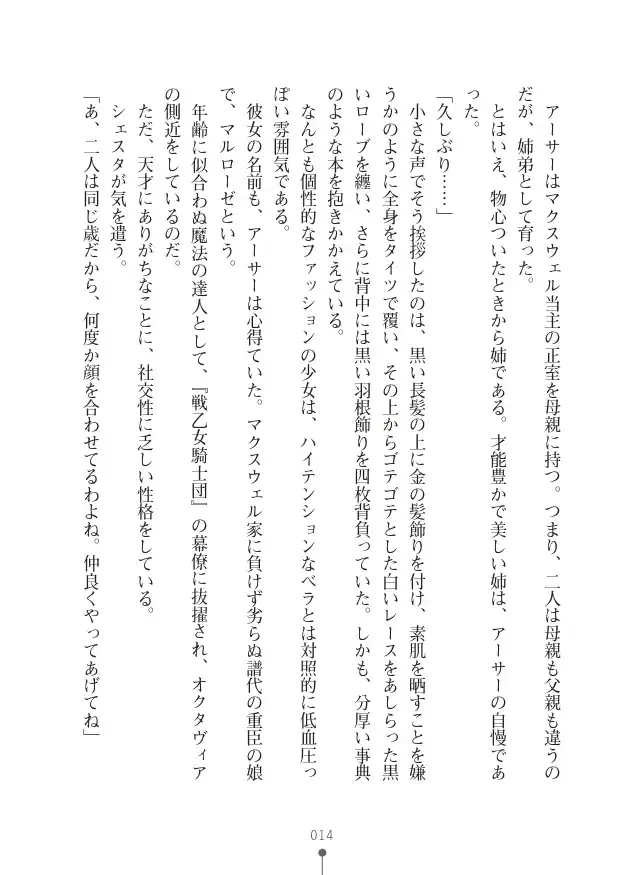 アーサーはマクスウェル当主の正室を母親に持つ。つまり、二人は母親も父親も違うの
だが、姉弟として育った。
とはいえ、物心ついたときから姉である。才能豊かで美しい姉は、アーサーの自慢であ
った。
「久しぶり……」
小さな声でそう挨拶したのは、黒い長髪の上に金の髪飾りを付け、素肌を晒すことを嫌
うかのように全身をタイツで覆い、その上からゴテゴテとした白いレースをあしらった黒
いローブを纏い、さらに背中には黒い羽根飾りを四枚背負っていた。しかも、分厚い事典
のような本を抱きかかえている。
なんとも個性的なファッションの少女は、ハイテンションなベラとは対照的に低血圧っ
ぽい雰囲気である。
彼女の名前も、アーサーは心得ていた。マクスウェル家に負けず劣らぬ譜代の重臣の娘
で、マルローゼという。
年齢に似合わぬ魔法の達人として、『戦乙女騎士団』の幕僚に抜擢され、オクタヴィア
の側近をしているのだ。
ただ、天才にありがちなことに、社交性に乏しい性格をしている。
シェスタが気を遣う。
「あ、二人は同じ歳だから、何度か顔を合わせてるわよね。仲良くやってあげてね」
014